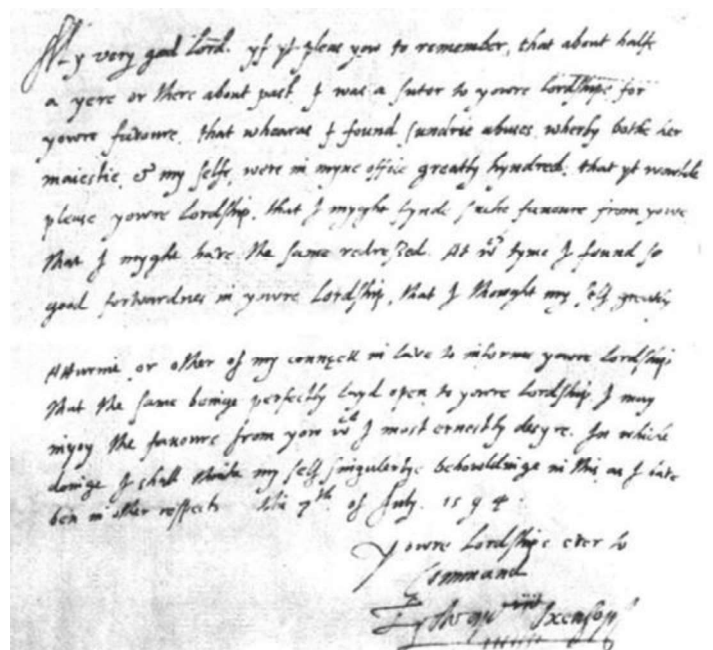 My very good Lord. yf yt pleas yow to remember, that about halfe
a yere or there about past. I was a suter to yowre Lordshipe for
yowre favoure, that whearas I found sundrie abuses, wherby bothe her
maiestie, & my selfe, were in myne office greatly hyndred: that yt wowlde
please yowre Lordship, that I myght fynde suche favoure from yowe
that I myght have the same redressed. At wch tyme I found so
good forwardnes in yowre Lordship, that I thought my self greatly
Atturnie, or other of my councell in lawe to informe yowre Lordship,
that the same beinge perfectly layd open to yowre Lordship, I may
inioy the favoure from yow wch I most ernestly desyre. In which
doinge I shall thinke my self singulerlye behowldinge in this, as I have
ben in other respects. this 7th of July. 1594
Yowre Lordships ever to
Command
Edward Oxenford